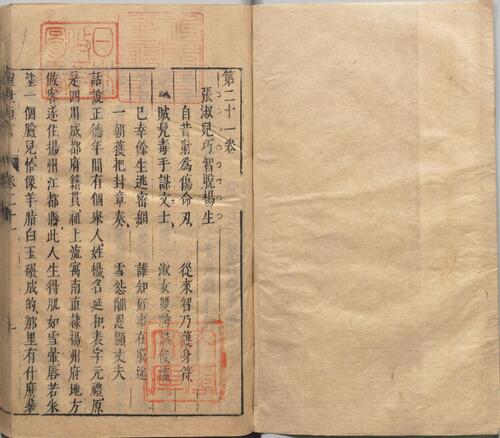 第二十一卷
張淑兒巧智脫楊生
自昔財為傷命刃 從來智乃護身符
賊髡毒手謀文士 淑女雙眸識俊儒
已幸餘生逃密網 誰知好事在窮途
一朝獲把封章奏 雪怨酬恩顯丈夫
話說正德年間有個舉人姓楊名延和表字元禮原
是四川成都府籍貫祖上流寓南直隸揚州府地方
做客遂住揚州江都縣此人生得肌如雪暈唇若朱
塗一個臉兒恰像羊脂白玉碾成的那里有什麼裴